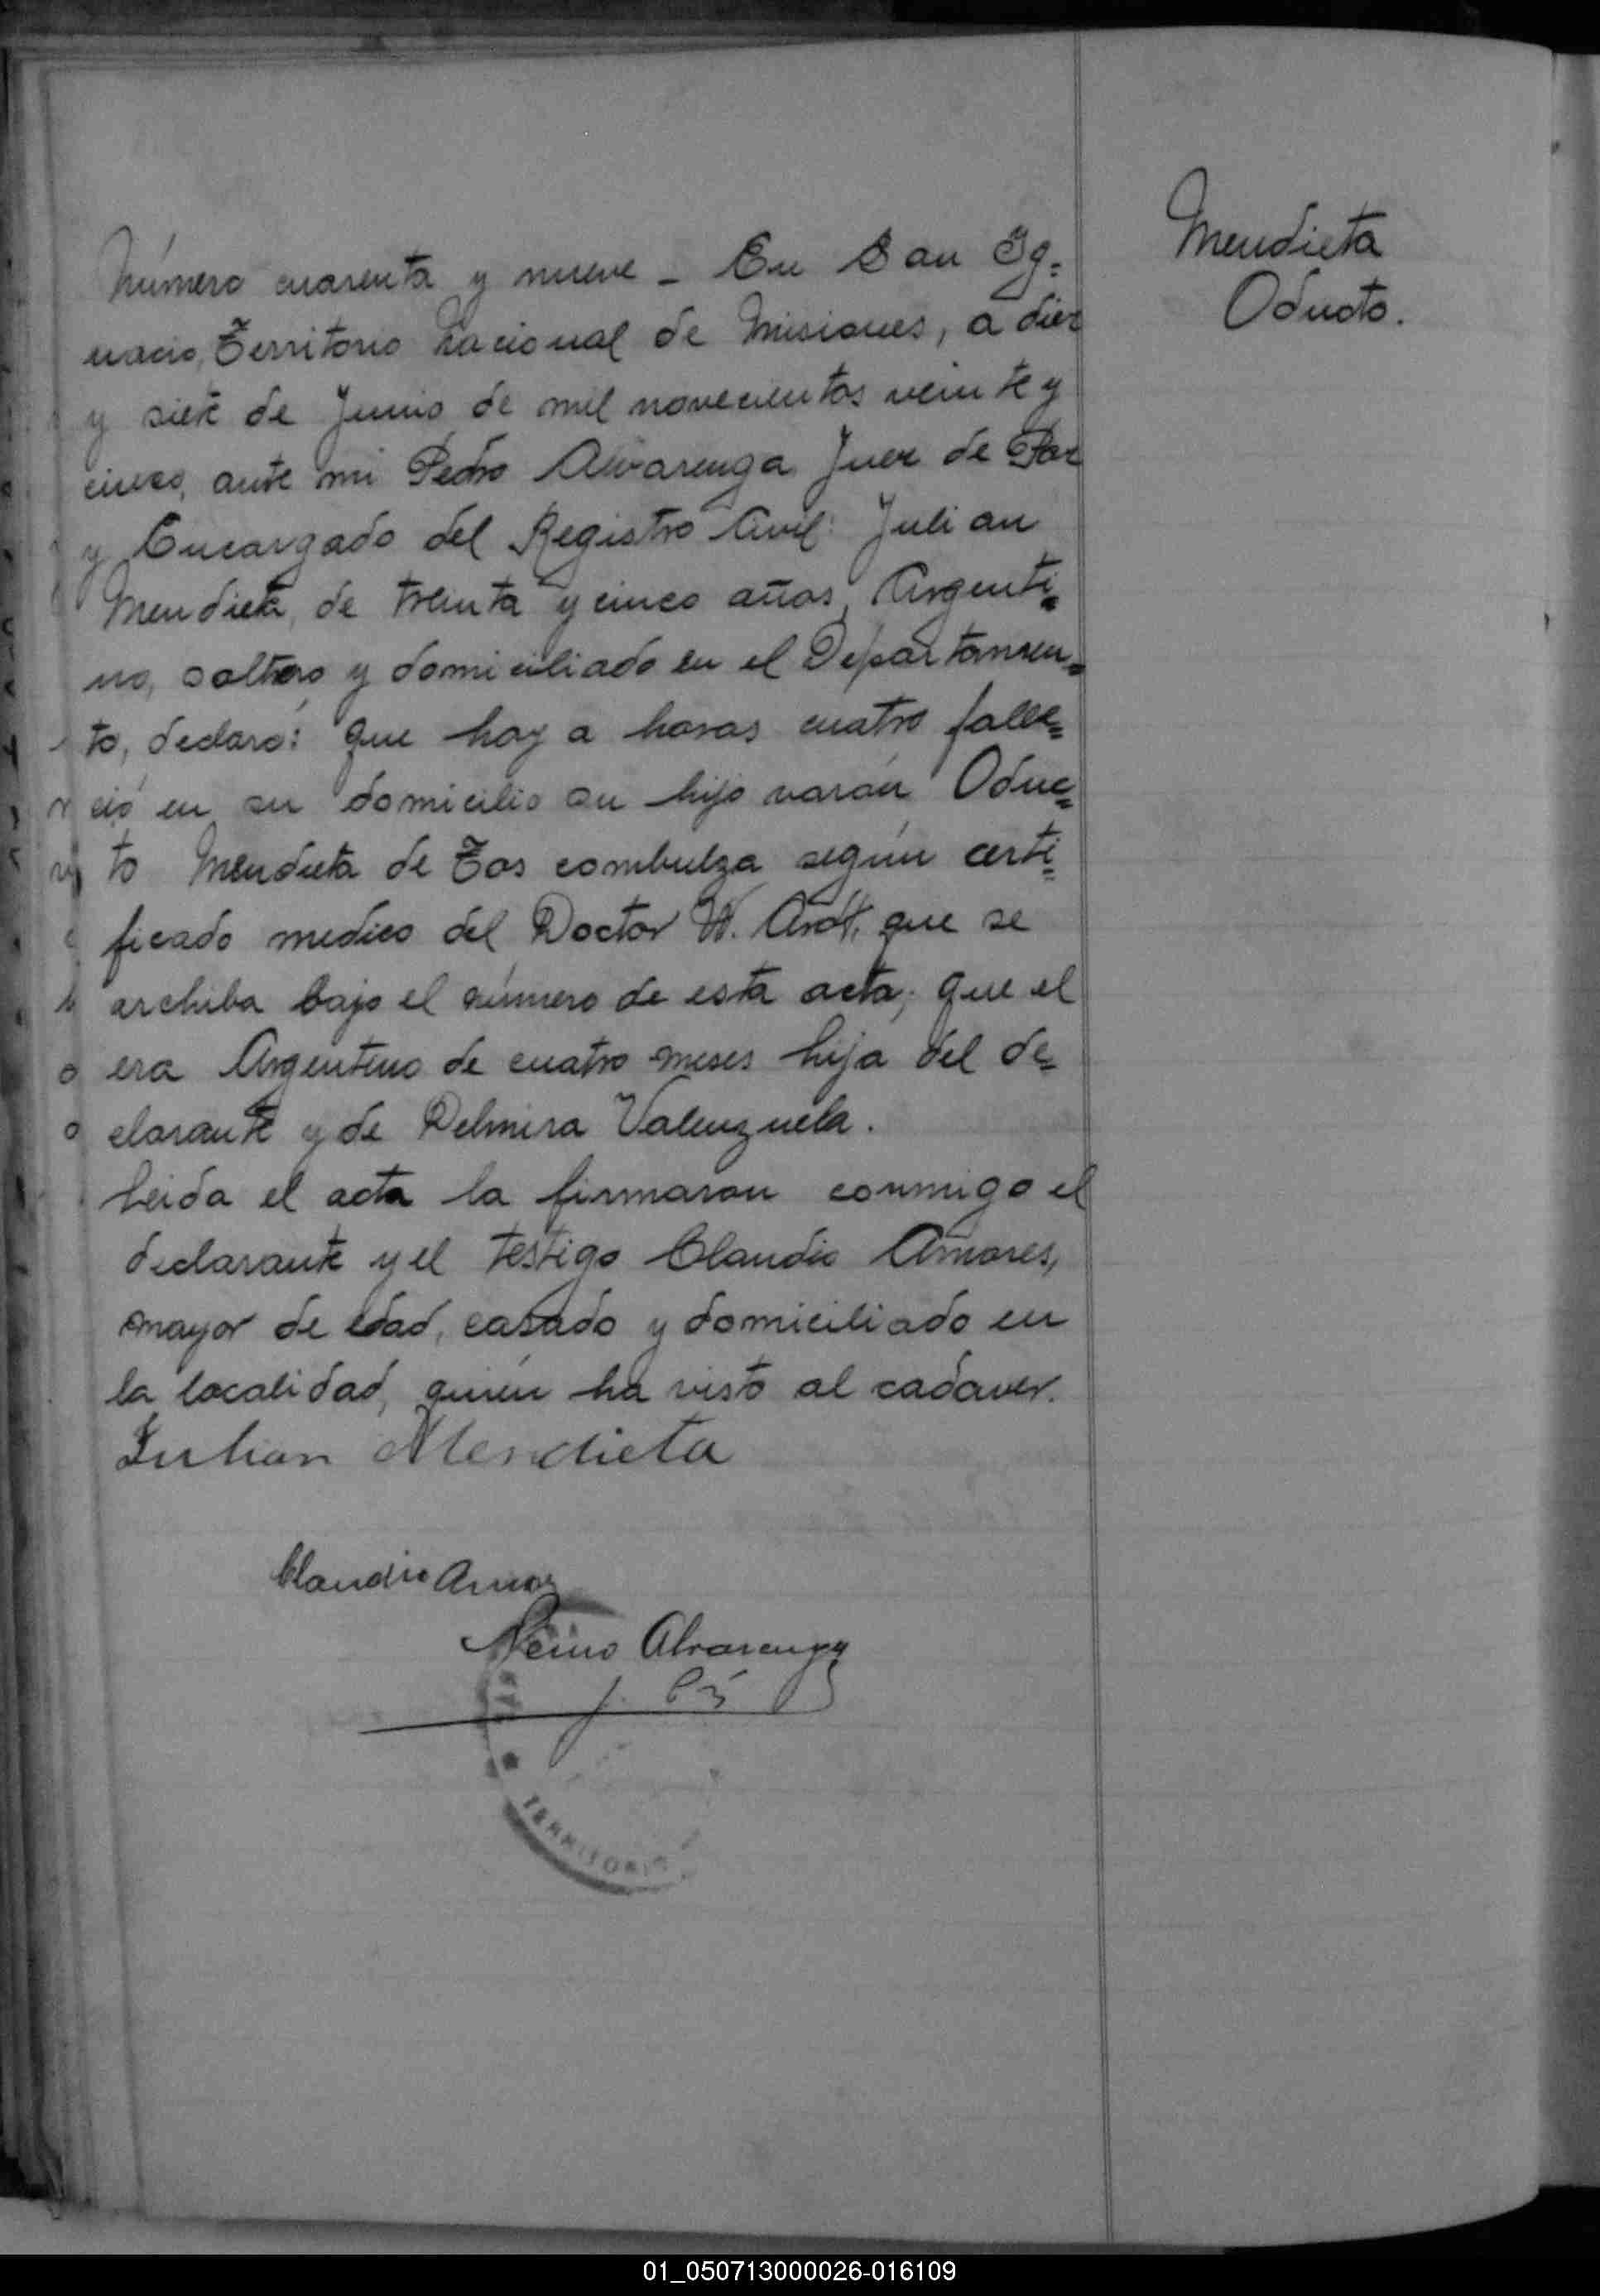 Mendieta
Oducto.
Número cuarenta y nueve - En San Ig=
nacio, Territorio Nacional de Misiones, a diez
y siete de Junio de mil novecientos veinte y
cinco, ante mi Pedro Alvarenga Juez de Paz
y Encargado del Registro Civil: Julian
Mendieta, de treinta y cinco años, Argenti=
no, soltero y domiciliado en el Departamen=
to, declaró: que hoy a horas cuatro falle=
ció en su domicilio su hijo varón Oduc=
to Mendieta de Tos combulza según certi=
ficado medico del Doctor W. que se
archiba bajo el número de esta acta; que el
era Argentino de cuatro meses hijo del de=
clarante y de Delmira Valenzuela.
Leida el acta la firmaron conmigo el
declarante y el testigo Claudio Amores,
mayor de edad, casado y domiciliado en
la localidad, quien ha visto al cadaver.
Julian Mendieta
Claudio
Alvarenga
TERRITORIO
01_050713000026-016109